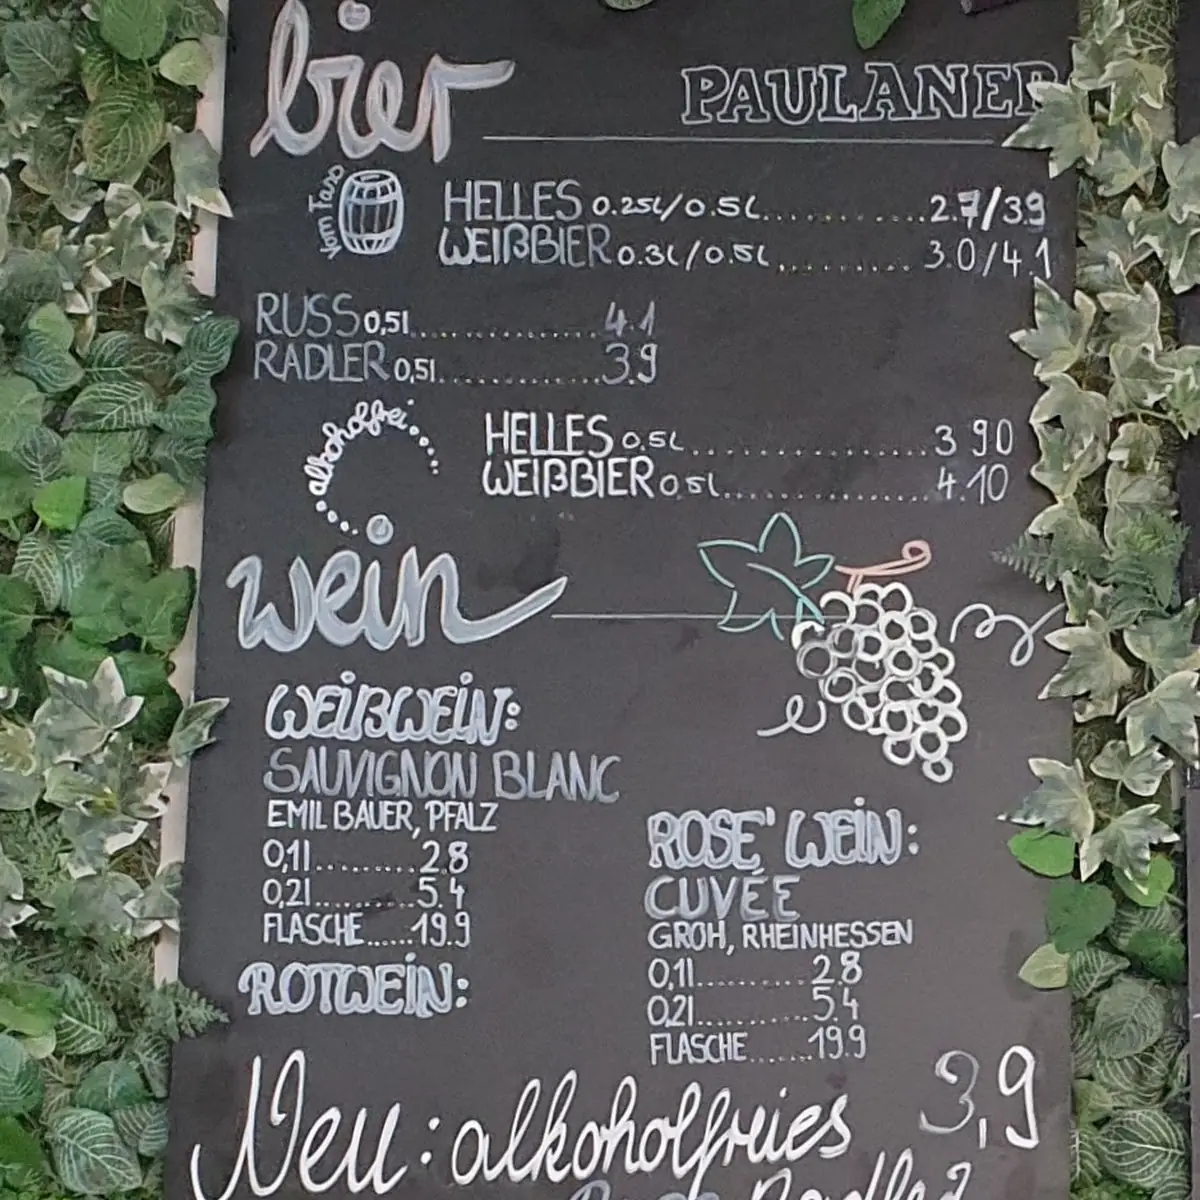 bier
PAULANER
vom Fass
HELLES 0.25L/0.5L.............2.7/3.9
WEIßBIER 0.3L/0.5L............3.0/4.1
RUSS 0,5l....................4.1
RADLER 0,5l................3.9
alkoholfrei
HELLES 0.5L....................3 90
WEIßBIER 0 5L..................4.10
wein
WEIßWEIN:
SAUVIGNON BLANC
EMIL BAUER, PFALZ
0,1l...........2.8
0,2l...........5.4
FLASCHE......19.9
ROTWEIN:
ROSE' WEIN:
CUVÉE
GROH, RHEINHESSEN
0,1l............2.8
0,2l............5.4
FLASCHE.......19.9
Neu: alkoholfreies 3,9